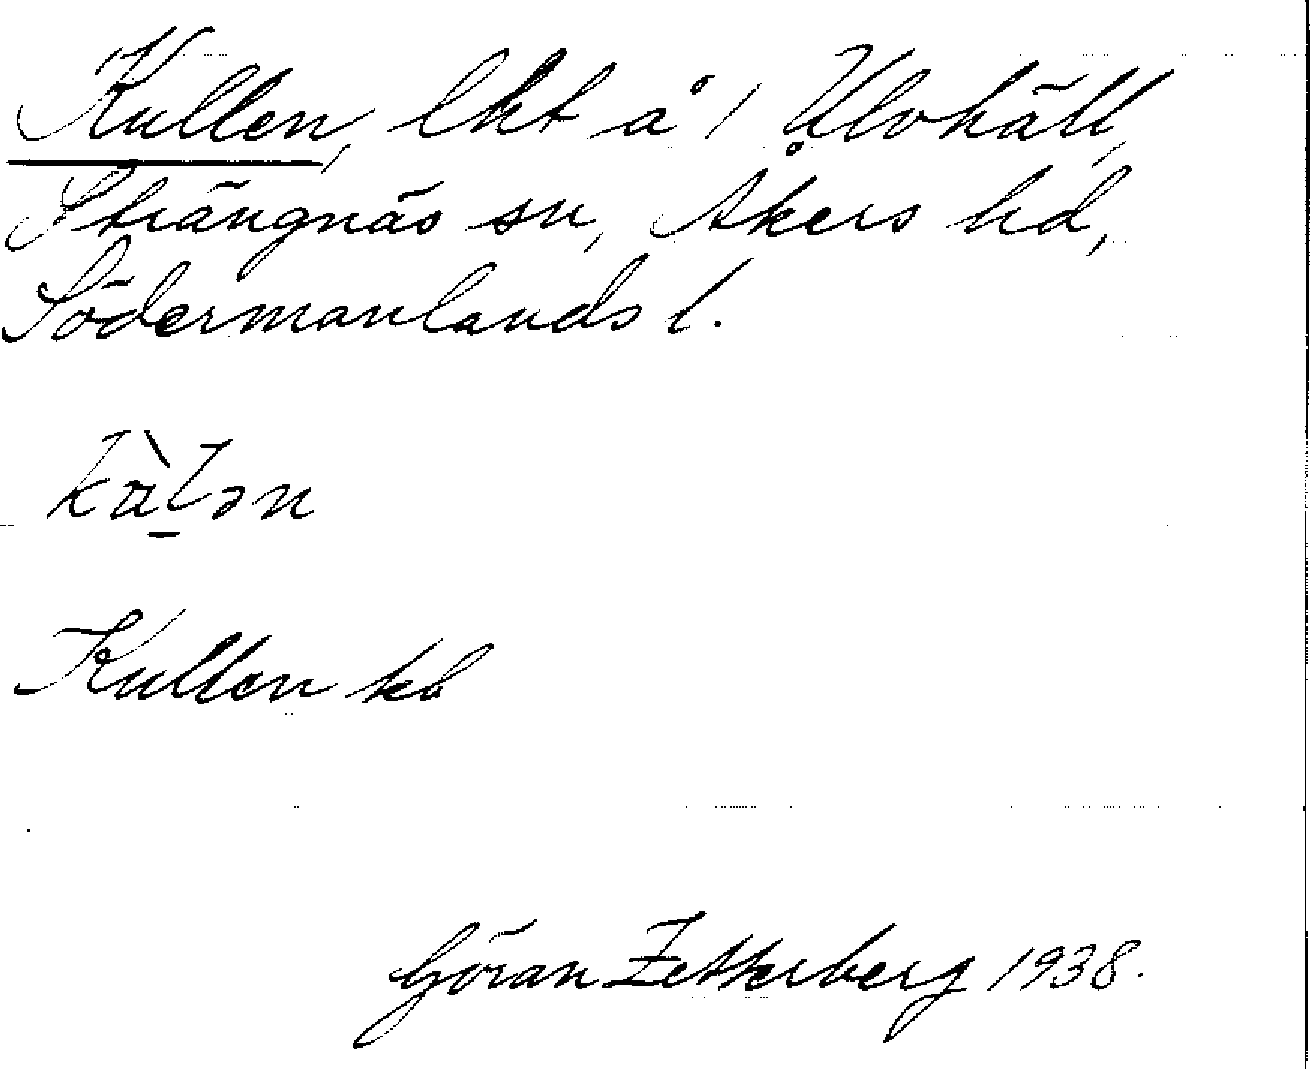 Kullen, lht å 1 Ulvhäll,
Strängnäs sn, Åkers hd,
Södermanlands l.
Kullen kb
Göran Zetterberg 1938.